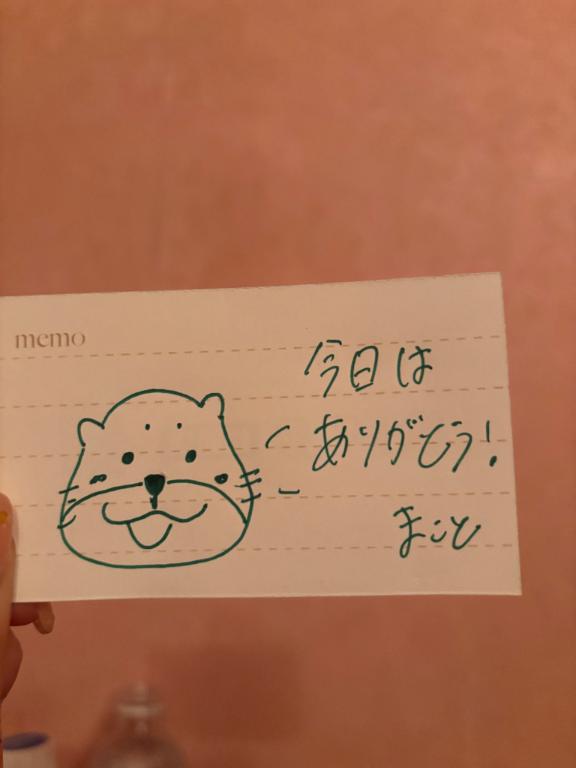 memo
今日は
ありがとう!
まこと